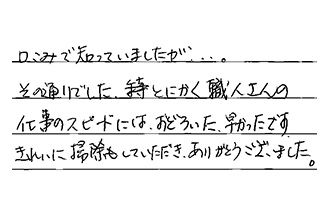 口こみで知っていましたが、、、。
その通りでした、とにかく職人さんの
仕事のスピードには、おどろいた、早かったです
きれいに掃除もしていただき、ありがとうございました。